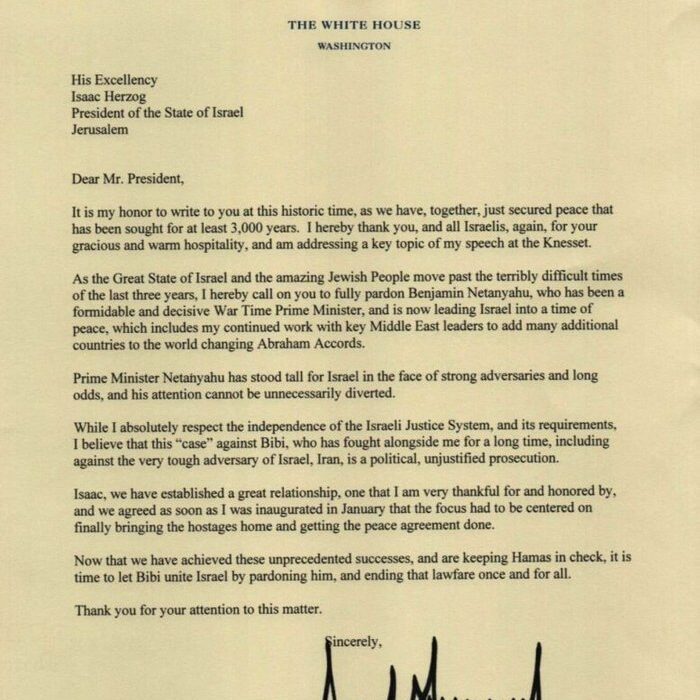 THE WHITE HOUSE
WASHINGTON
His Excellency
Isaac Herzog
President of the State of Israel
Jerusalem
Dear Mr. President,
It is my honor to write to you at this historic time, as we have, together, just secured peace that
has been sought for at least 3,000 years. I hereby thank you, and all Israelis, again, for your
gracious and warm hospitality, and am addressing a key topic of my speech at the Knesset.
As the Great State of Israel and the amazing Jewish People move past the terribly difficult times
of the last three years, I hereby call on you to fully pardon Benjamin Netanyahu, who has been a
formidable and decisive War Time Prime Minister, and is now leading Israel into a time of
peace, which includes my continued work with key Middle East leaders to add many additional
countries to the world changing Abraham Accords.
Prime Minister Netanyahu has stood tall for Israel in the face of strong adversaries and long
odds, and his attention cannot be unnecessarily diverted.
While I absolutely respect the independence of the Israeli Justice System, and its requirements,
I believe that this “case” against Bibi, who has fought alongside me for a long time, including
against the very tough adversary of Israel, Iran, is a political, unjustified prosecution.
Isaac, we have established a great relationship, one that I am very thankful for and honored by,
and we agreed as soon as I was inaugurated in January that the focus had to be centered on
finally bringing the hostages home and getting the peace agreement done.
Now that we have achieved these unprecedented successes, and are keeping Hamas in check, it is
time to let Bibi unite Israel by pardoning him, and ending that lawfare once and for all.
Thank you for your attention to this matter.
Sincerely,